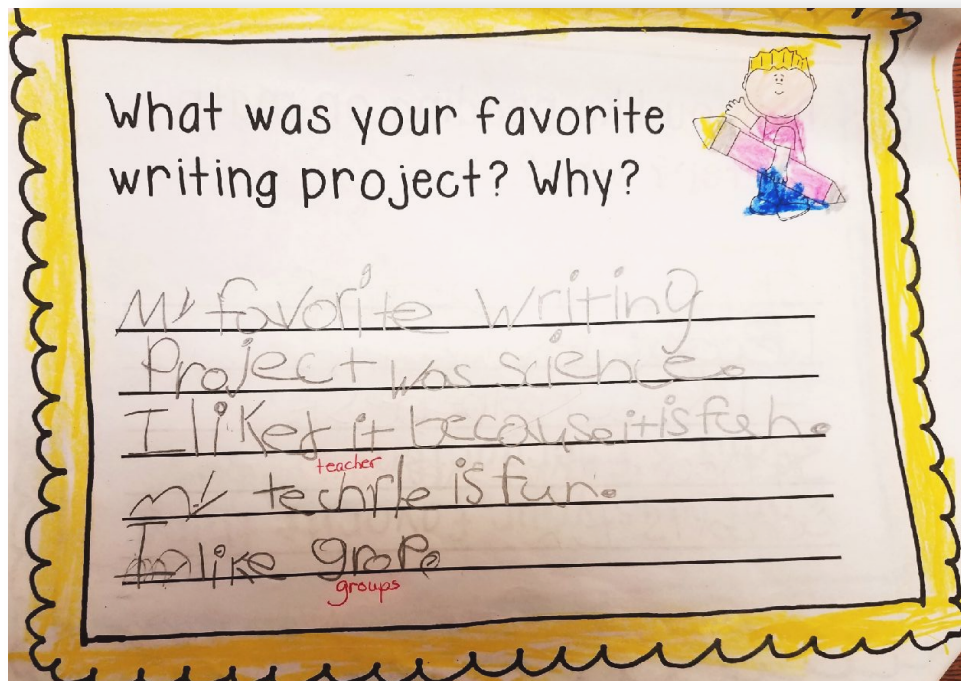 What was your favorite
writing project? Why?
My favorite writing
Project was science.
I liked it because it is fun.
teacher
my techrle is fun.
I like grop.
groups